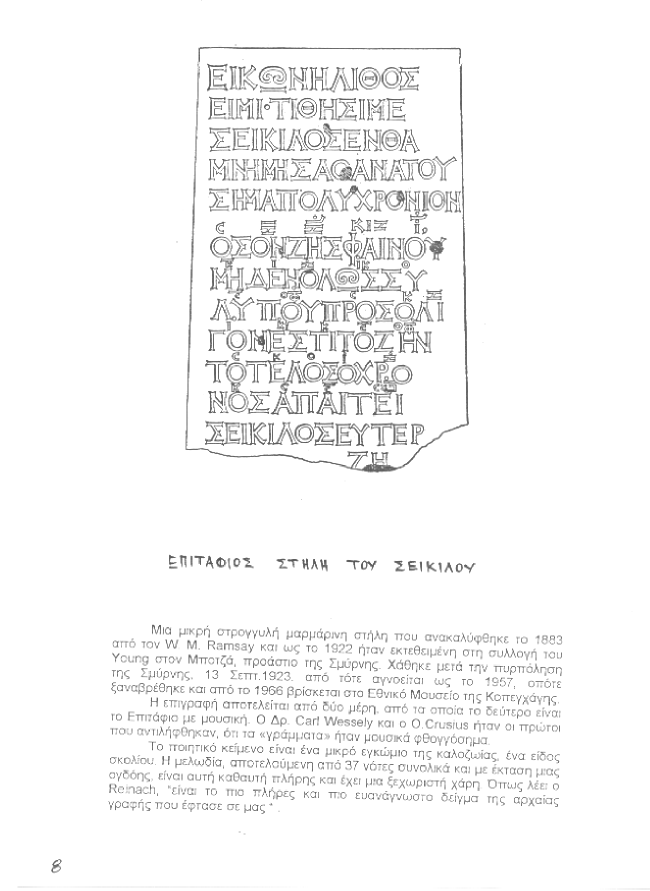 ΕΙΚΩΝΗΛΙΘΟΣ
ΕΙΜΙ·ΤΙΘΗΣΙΜΕ
ΣΕΙΚΙΛΟΣΕΝΘΑ
ΜΝΗΜΗΣΑΘΑΝΑΤΟΥ
ΣΗΜΑΠΟΛΥΧΡΟΝΙΟΝ
ΟΣΟΝΖΗΣΦΑΙΝΟΥ
ΜΗΔΕΝΟΛΩΣΣΥ
ΛΥΠΟΥΠΡΟΣΟΛΙ
ΓΟΝΕΣΤΙΤΟΖΗΝ
ΤΟΤΕΛΟΣΟΧΡΟ
ΝΟΣΑΠΑΙΤΕΙ
ΣΕΙΚΙΛΟΣΕΥΤΕΡ
ΖΗ
ΕΠΙΤΑΦΙΟΣ ΣΤΗΛΗ ΤΟΥ ΣΕΙΚΙΛΟΥ
Μια μικρή στρογγυλή μαρμάρινη στήλη που ανακαλύφθηκε το 1883
από τον W. M. Ramsay και ως το 1922 ήταν εκτεθειμένη στη συλλογή του
Young στον Μποτζά, προάστιο της Σμύρνης. Χάθηκε μετά την πυρπόληση
της Σμύρνης, 13 Σεπτ.1923. από τότε αγνοείται ως το 1957, οπότε
ξαναβρέθηκε και από το 1966 βρίσκεται στο Εθνικό Μουσείο της Κοπεγχάγης.
Η επιγραφή αποτελείται από δύο μέρη, από τα οποία το δεύτερο είναι
το Επιτάφιο με μουσική. Ο Δρ. Carl Wessely και ο O.Crusius ήταν οι πρώτοι
που αντιλήφθηκαν, ότι τα «γράμματα» ήταν μουσικά φθογγόσημα.
Το ποιητικό κείμενο είναι ένα μικρό εγκώμιο της καλοζωίας, ένα είδος
σκολίου. Η μελωδία, αποτελούμενη από 37 νότες συνολικά και με έκταση μιας
ογδόης, είναι αυτή καθαυτή πλήρης και έχει μια ξεχωριστή χάρη. Όπως λέει ο
Reinach, "είναι το πιο πλήρες και πιο ευανάγνωστο δείγμα της αρχαίας
γραφής που έφτασε σε μας " .
8